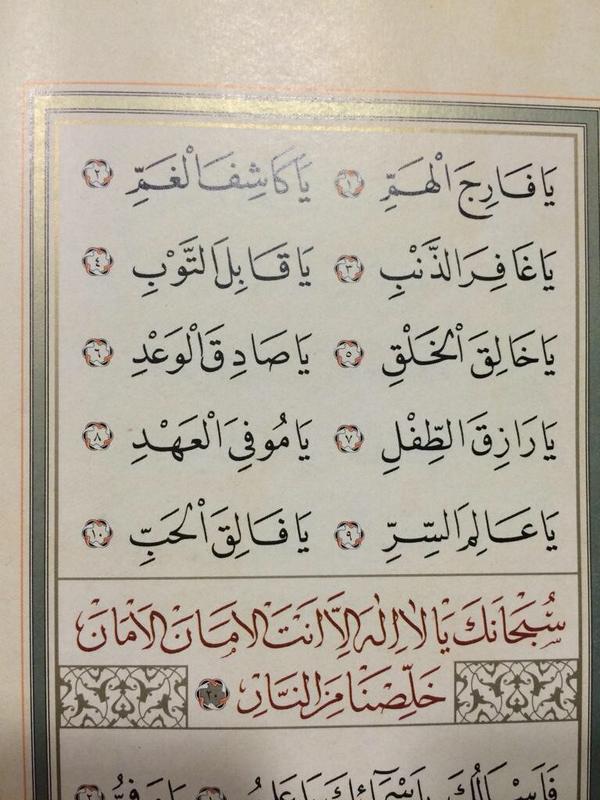 يَا فَارِجَ الْهَمِّ ١ يَا كَاشِفَ الْغَمِّ ٢
يَا غَافِرَ الذَّنْبِ ٣ يَا قَابِلَ التَّوْبِ ٤
يَا خَالِقَ الْخَلْقِ ٥ يَا صَادِقَ الْوَعْدِ ٦
يَا رَازِقَ الطِّفْلِ ٧ يَا مُوفِيَ الْعَهْدِ ٨
يَا عَالِمَ السِّرِّ ٩ يَا فَالِقَ الْحَبِّ ١٠
سُبْحَانَكَ يَا لَا إِلٰهَ إِلَّا أَنْتَ الْأَمَانَ الْأَمَانَ
خَلِّصْنَا مِنَ النَّارِ ٢٠